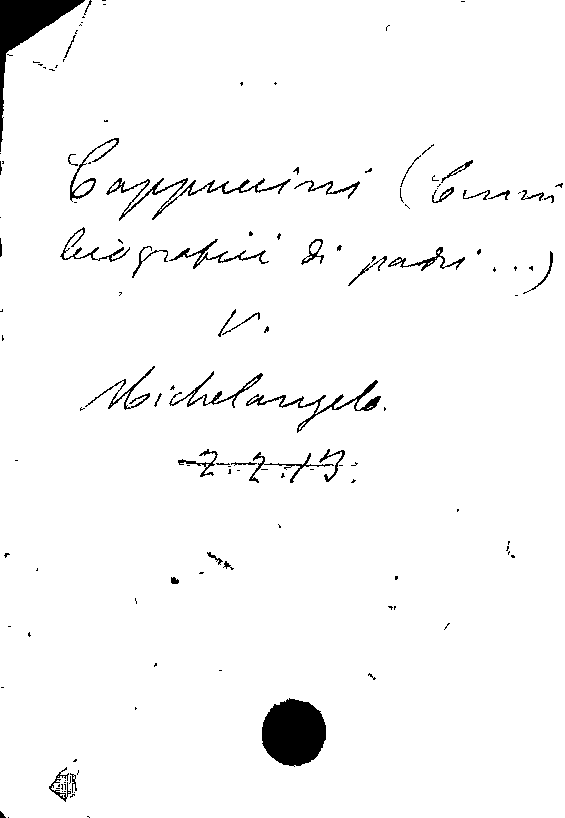 Cappuccini (Cenni
biografici di padri ...)
V.
Michelangelo.
2.2.13.